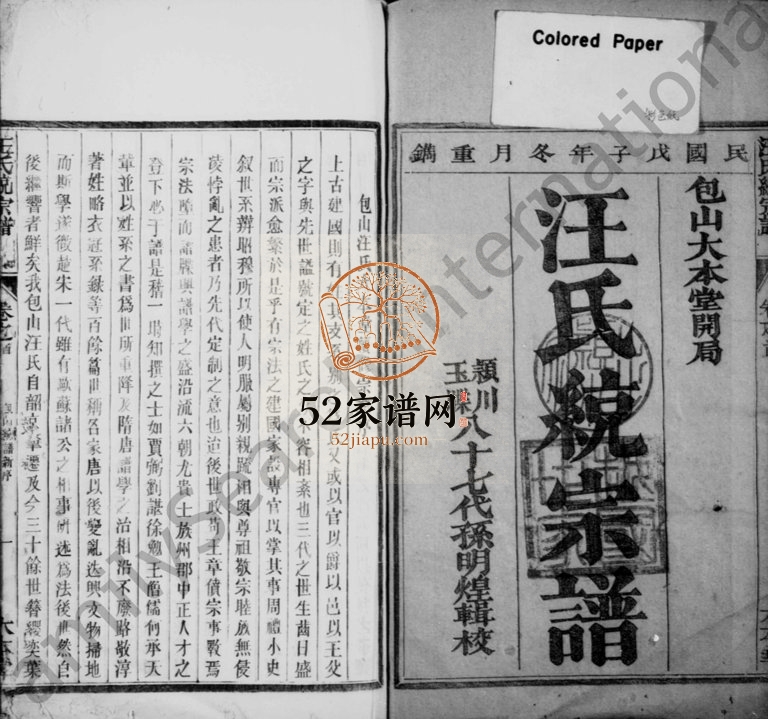 Colored Paper
彩色紙
民國戊子年冬月重鐫
包山大本堂開局
汪氏統宗譜
潁川
八十七代孫明煌輯校
包山汪氏
上古建國則有
或以官以爵以邑以王父
之字與先世諡號定之姓氏之
容相紊也三代之世生齒日盛
而宗派愈繁於是乎有宗法之建國家設專官以掌其事周禮小史
敘世系辨昭穆所以使人明服屬別親疏相與尊祖敬宗睦族無侵
陵悖亂之患者乃先代定制之意也迨後世政衰王章僨宗事斁焉
宗法隳而譜牒興譜學之盛沿流六朝尤貴士族州郡中正人才之
登下必于譜是稽一時知撰之士如賈弼劉湛徐勉王僧儒何承天
輩並以姓系之書爲世所重降及隋唐譜學之治相沿不廢路敬淳
著姓略衣冠系錄等百餘篇世稱名家唐以後變亂迭興文物掃地
而斯學遂微趙宋一代雖有歐蘇諸公之相事研述爲法後世然自
後繼響者鮮矣我包山汪氏自韶
遷及今三十餘世簪纓奕葉
汪氏統宗譜
卷之首
一
大本堂
52家谱网
52jiapu.com
FamilySearch International